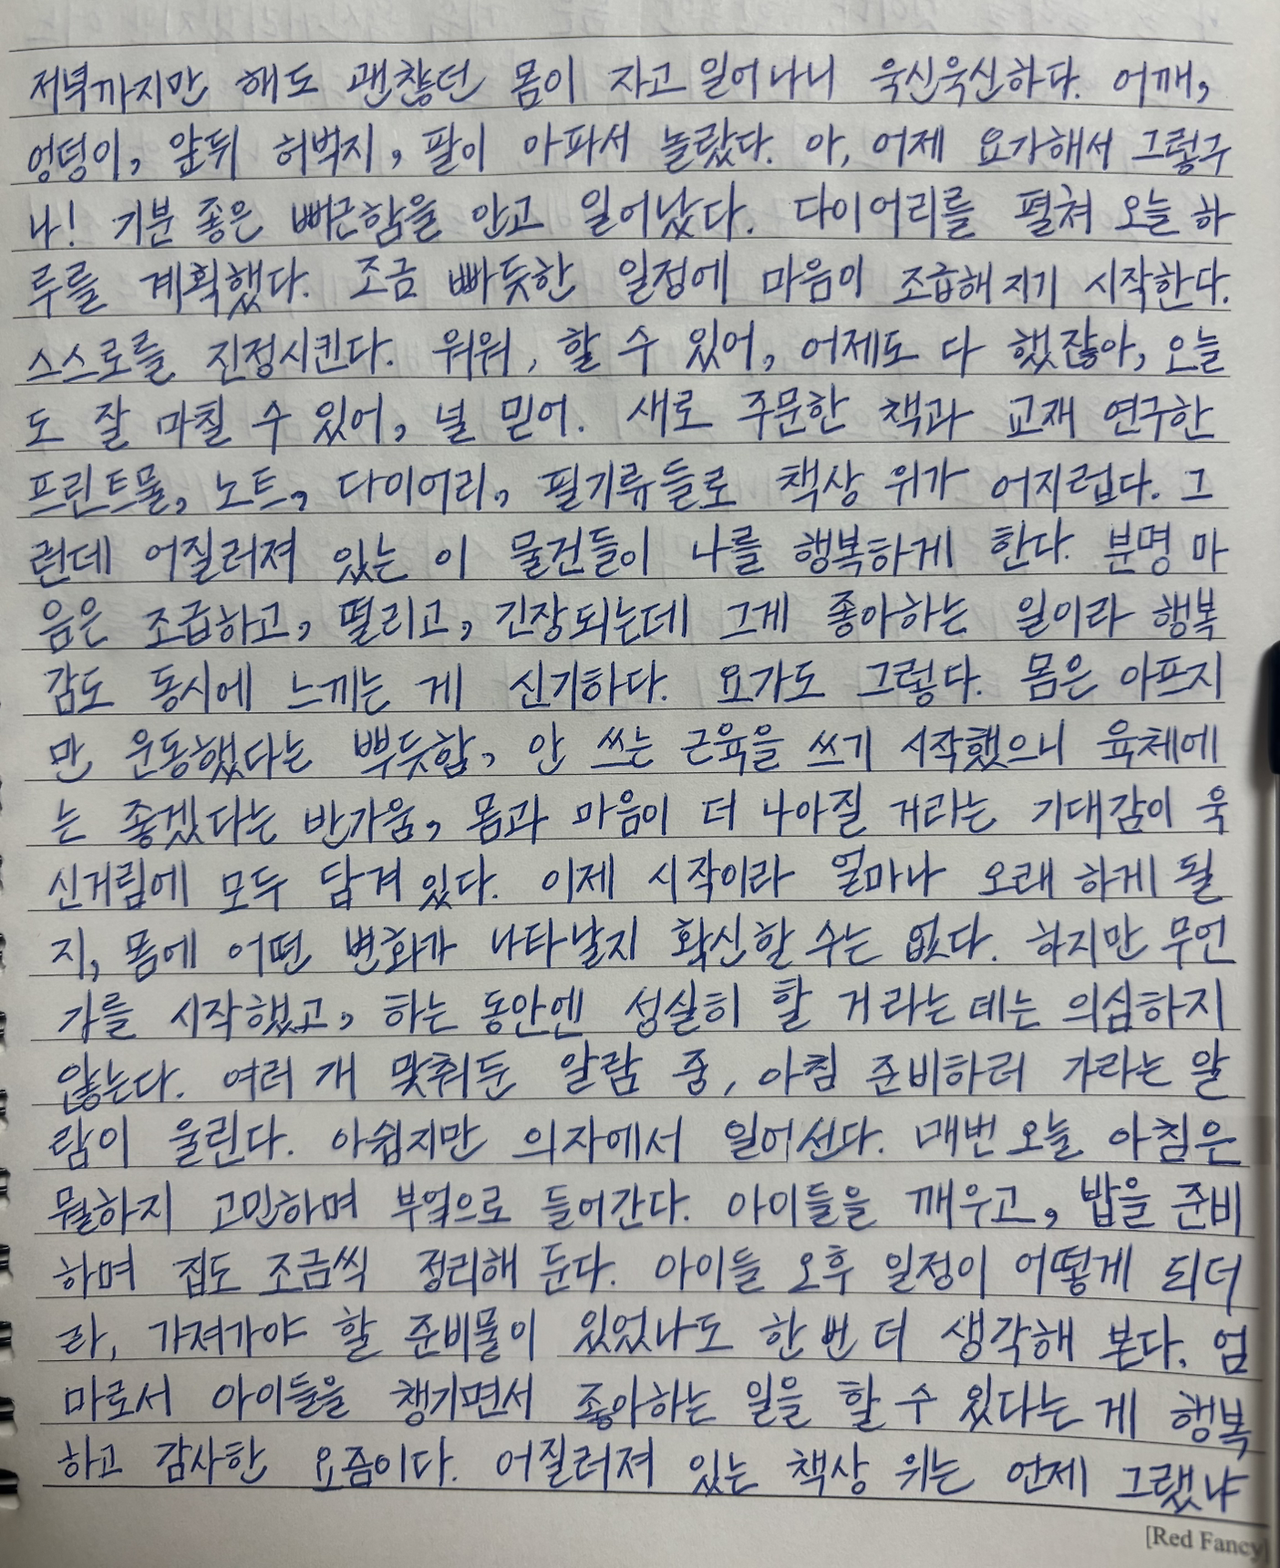 저녁까지만 해도 괜찮던 몸이 자고 일어나니 욱신욱신하다. 어깨,
엉덩이, 앞뒤 허벅지, 팔이 아파서 놀랐다. 아, 어제 요가해서 그렇구
나! 기분 좋은 뻐근함을 안고 일어났다. 다이어리를 펼쳐 오늘 하
루를 계획했다. 조금 빠듯한 일정에 마음이 조급해지기 시작한다.
스스로를 진정시킨다. 워워, 할 수 있어, 어제도 다 했잖아, 오늘
도 잘 마칠 수 있어, 널 믿어. 새로 주문한 책과 교재 연구한
프린트물, 노트, 다이어리, 필기류들로 책상 위가 어지럽다. 그
런데 어질러져 있는 이 물건들이 나를 행복하게 한다. 분명 마
음은 조급하고, 떨리고, 긴장되는데 그게 좋아하는 일이라 행복
감도 동시에 느끼는 게 신기하다. 요가도 그렇다. 몸은 아프지
만 운동했다는 뿌듯함, 안 쓰는 근육을 쓰기 시작했으니 육체에
는 좋겠다는 반가움, 몸과 마음이 더 나아질 거라는 기대감이 욱
신거림에 모두 담겨 있다. 이제 시작이라 얼마나 오래 하게 될
지, 몸에 어떤 변화가 나타날지 확신할 수는 없다. 하지만 무언
가를 시작했고, 하는 동안엔 성실히 할 거라는 데는 의심하지
않는다. 여러 개 맞춰둔 알람 중, 아침 준비하러 가라는 알
람이 울린다. 아쉽지만 의자에서 일어선다. 매번 오늘 아침은
뭘하지 고민하며 부엌으로 들어간다. 아이들을 깨우고, 밥을 준비
하며 집도 조금씩 정리해 둔다. 아이들 오후 일정이 어떻게 되더
라, 가져가야 할 준비물이 있었나도 한 번 더 생각해 본다. 엄
마로서 아이들을 챙기면서 좋아하는 일을 할 수 있다는 게 행복
하고 감사한 요즘이다. 어질러져 있는 책상 위는 언제 그랬냐
[Red Fancy]